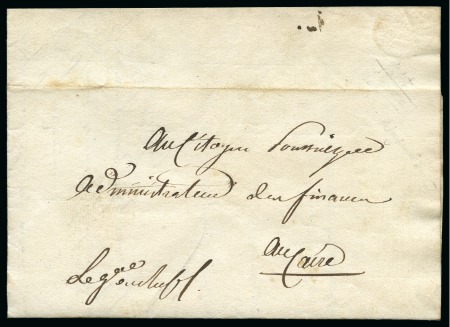 Au Citoyen Poussielgue
administrateur des finances
au Caire
Le gal en chef